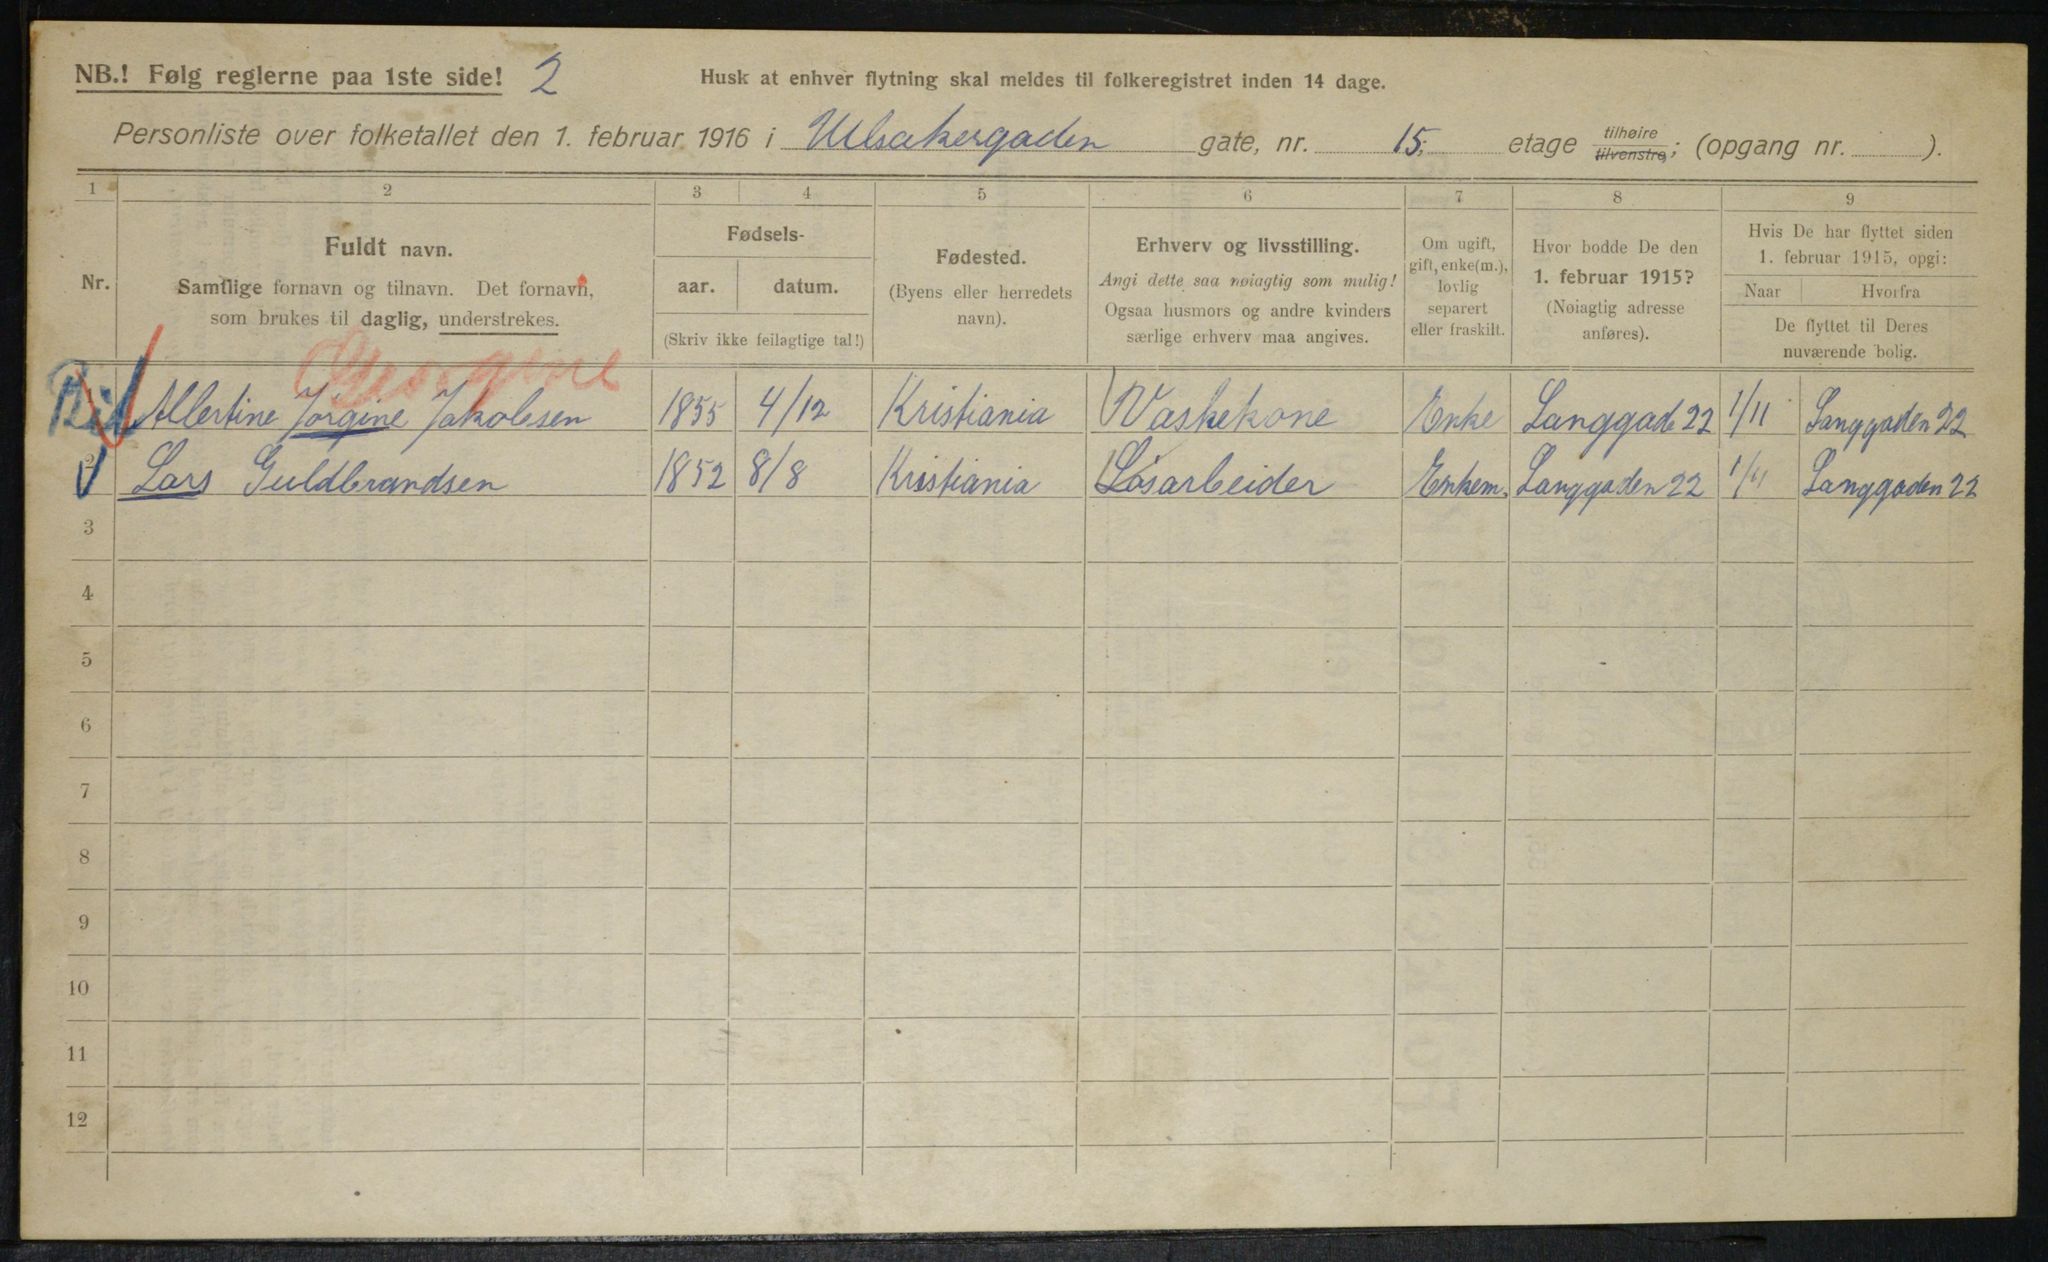 NB.! Følg reglerne paa 1ste side! 2 Husk at enhver flytning skal meldes til folkeregistret inden 14 dage.
Personliste over folketallet den 1. februar 1916 i Ulsakergaden gate, nr. 15; etage tilhøire tilvenstre; (opgang nr. ).
1 2 3 4 5 6 7 8 9
Nr.
Fuldt navn.
Samtlige fornavn og tilnavn. Det fornavn,
som brukes til daglig, understrekes.
Fødsels-
aar. datum.
(Skriv ikke feilagtige tal!)
Fødested.
(Byens eller herredets
navn).
Erhverv og livsstilling.
Angi dette saa nøiagtig som mulig!
Ogsaa husmors og andre kvinders
særlige erhverv maa angives.
Om ugift,
gift, enke(m.),
lovlig
separert
eller fraskilt.
Hvor bodde De den
1. februar 1915?
(Nøiagtig adresse
anføres).
Hvis De har flyttet siden
1. februar 1915, opgi:
Naar Hvorfra
De flyttet til Deres
nuværende bolig.
Albertine Jørgine Jakobsen 1855 4/12 Kristiania Vaskekone Enke Langgade 22 1/11 Langgaden 22
2 Lars Guldbrandsen 1852 8/8 Kristiania Løsarbeider Enkem. Langgaden 22 1/11 Langgaden 22
3
4
5
6
7
8
9
10
11
12